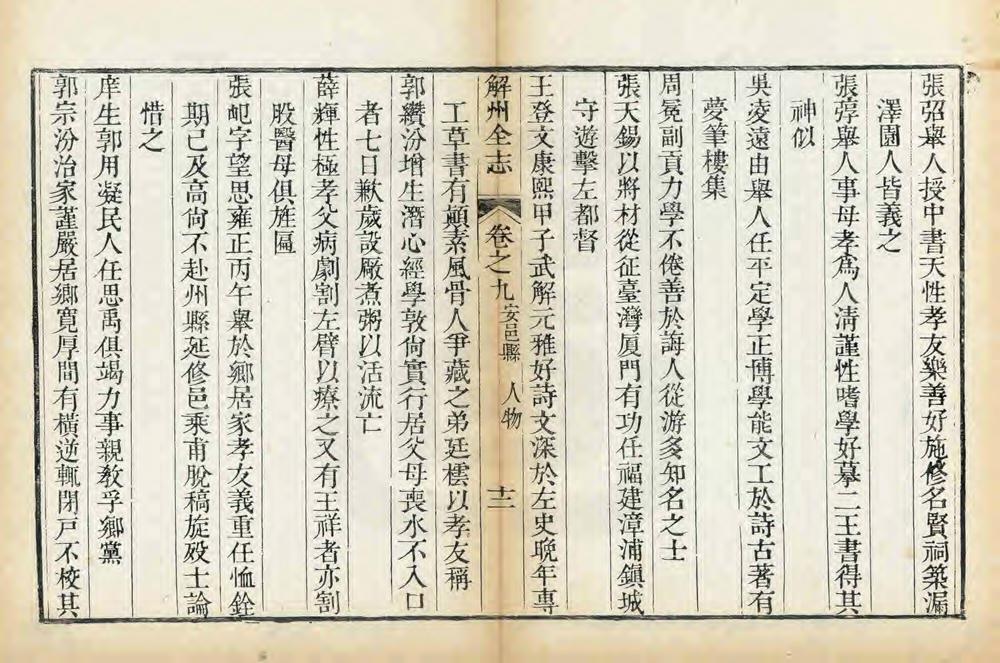 張弨舉人授中書天性孝友樂善好施修名賢祠築漏
澤園人皆義之
張彛舉人事母孝爲人淸謹性嗜學好摹二王書得其
神似
吳凌遠由舉人任平定學正博學能文工於詩古著有
夢筆樓集
周冕副貢力學不倦善於誨人從游多知名之士
張天錫以將材從征臺灣厦門有功任福建漳浦鎭城
守遊擊左都督
王登文康熙甲子武解元雅好詩文深於左史晚年專
解州全志 卷之九 安邑縣 人物 十二
工草書有顚素風骨人爭藏之弟廷櫄以孝友稱
郭纘汾增生潛心經學敦尙實行居父母喪水不入口
者七日歉歲設厰煮粥以活流亡
薛輝性極孝父病劇割左臂以療之又有王祥者亦割
股醫母俱旌匾
張岠字望思雍正丙午舉於鄉居家孝友義重任恤銓
期已及高尙不赴州縣延修邑乘甫脫稿旋歿士論
惜之
庠生郭用凝民人任思禹俱竭力事親敎孚鄉黨
郭宗汾治家謹嚴居鄉寬厚間有橫逆輒閉戸不校其